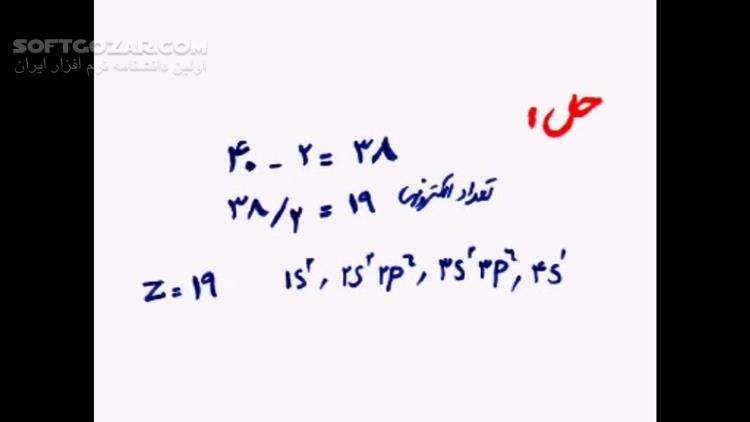 SOFTGOZAR.COM
اولین دانشنامه نرم افزار ایران
حل :
۴۰ - ۲ = ۳۸
۳۸/۲ = ۱۹ تعداد الکترونها
Z = ۱۹ ۱s², ۲s² ۲p⁶, ۳s² ۳p⁶, ۴s¹